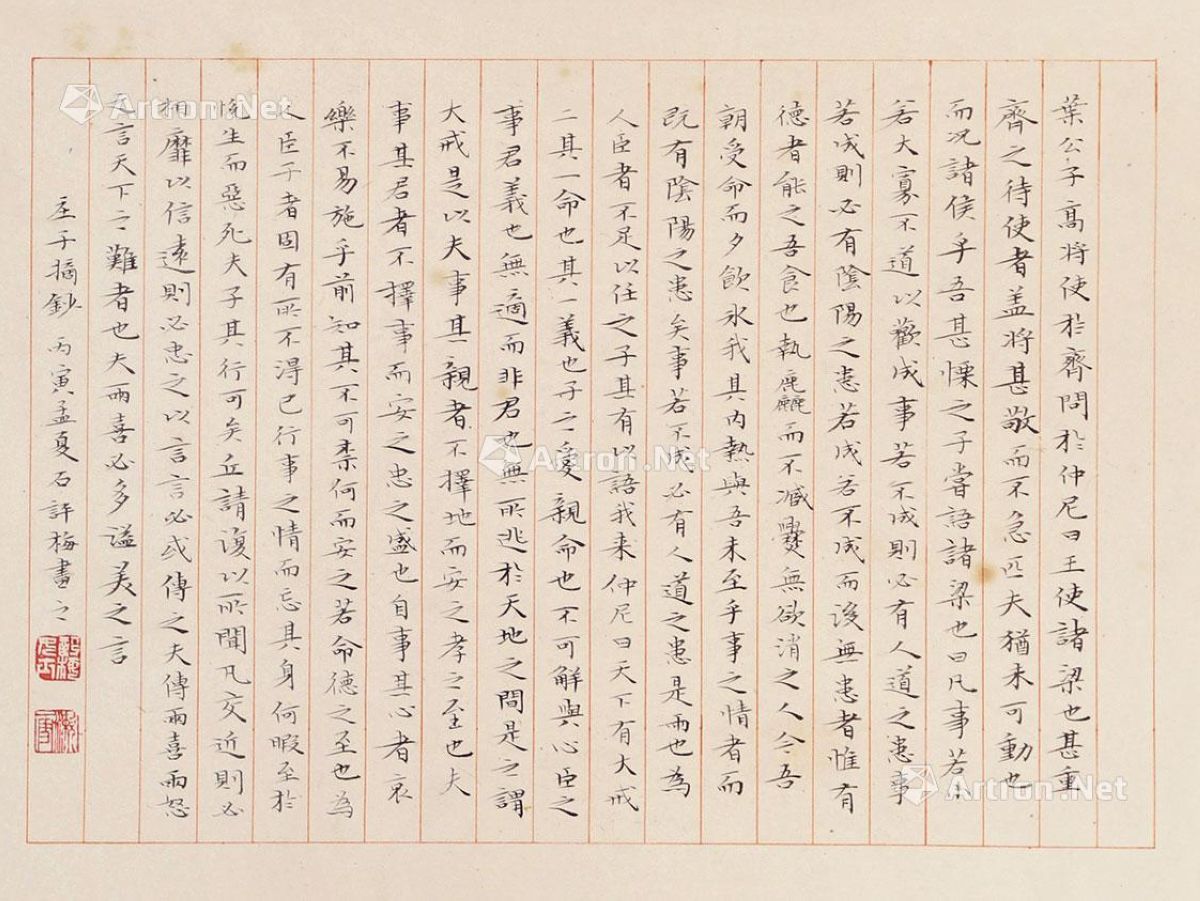 葉公子高將使於齊問於仲尼曰王使諸梁也甚重
齊之待使者盖將甚敬而不急匹夫猶未可動也
而況諸侯乎吾甚慄之子嘗語諸梁也曰凡事若小
若大寡不道以歡成事若不成則必有人道之患事
若成則必有陰陽之患若成若不成而後無患者惟有
德者能之吾食也執麤而不臧爨無欲消之人今吾
朝受命而夕飲冰我其內熱與吾未至乎事之情者而
既有陰陽之患矣事若不成必有人道之患是兩也為
人臣者不足以任之子其有以語我来仲尼曰天下有大戒
二其一命也其一義也子之愛親命也不可解與心臣之
事君義也無適而非君也無所逃於天地之間是之謂
大戒是以夫事其親者不擇地而安之孝之至也夫
事其君者不擇事而安之忠之盛也自事其心者哀
樂不易施乎前知其不可柰何而安之若命德之至也為
人臣子者固有所不得已行事之情而忘其身何暇至於
悅生而惡死夫子其行可矣丘請復以所聞凡交近則必
相靡以信遠則必忠之以言言必或傳之夫傳兩喜兩怒
之言天下之難者也夫兩喜必多溢美之言
庄子摘鈔 丙寅孟夏石許梅畫之
Artron.Net
Artron.Net
Artron.Net
Artron.Net